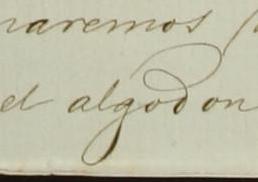 naremos
el algodon